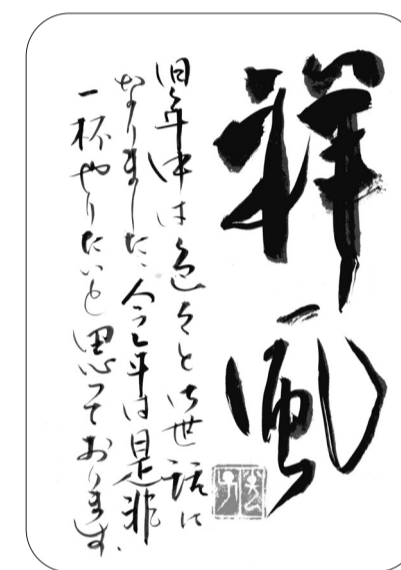 祥風
旧年中は色々と御世話に
なりました、今年は是非
一杯やりたいと思っております。